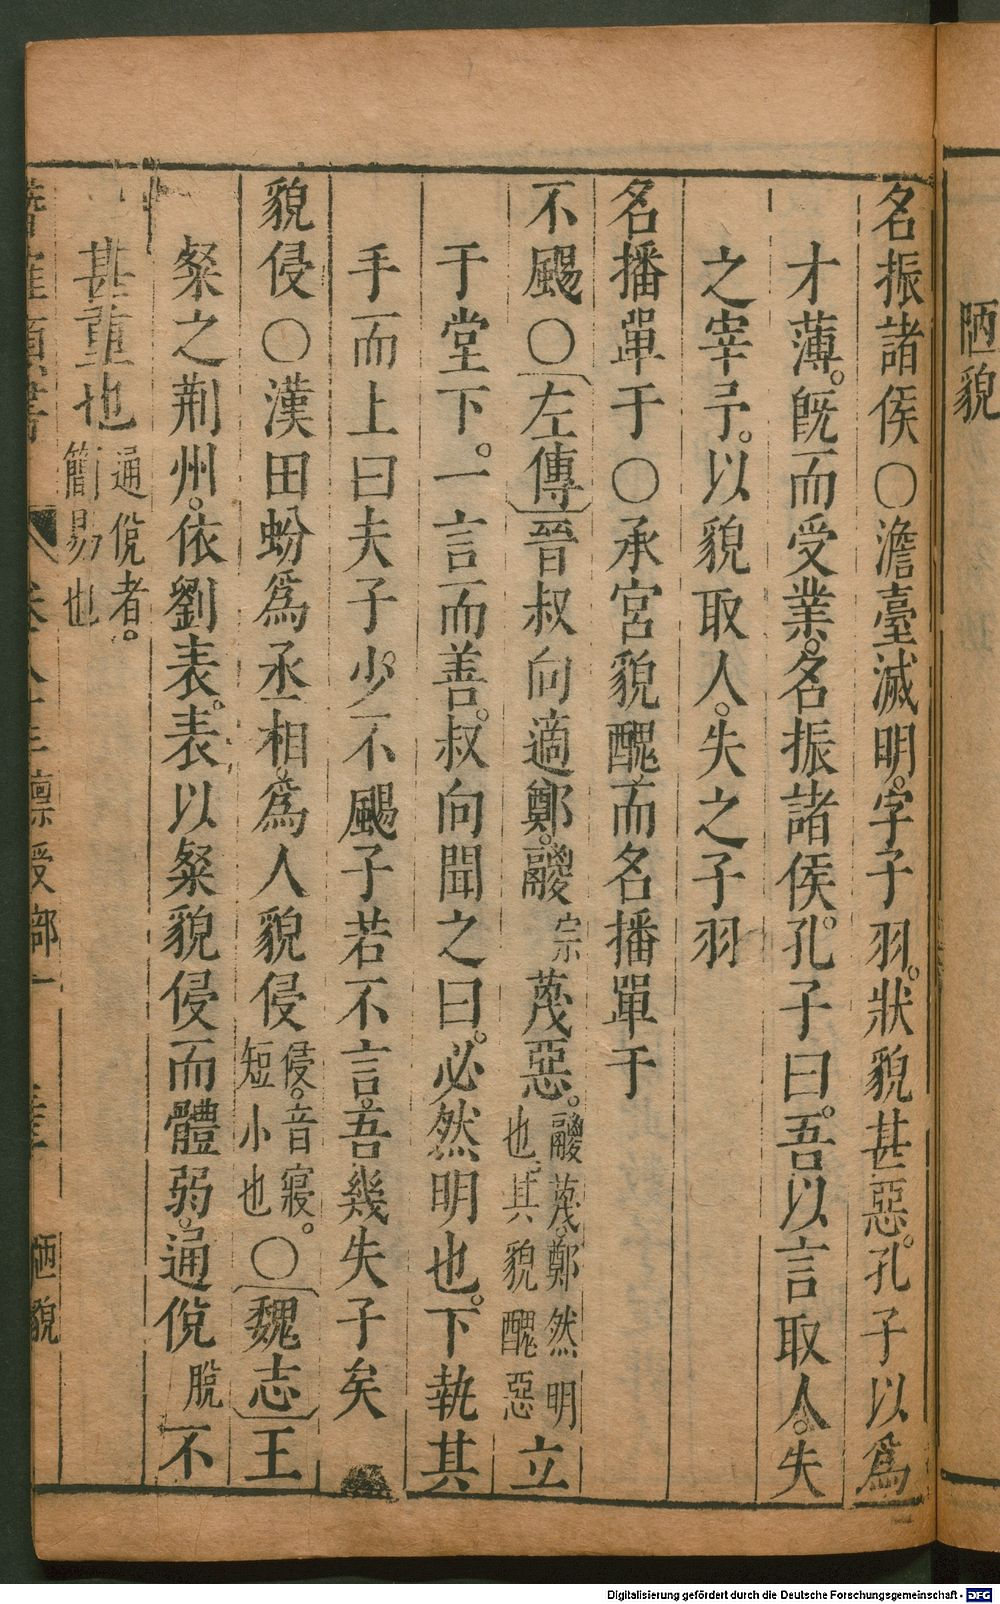 陋貌
名振諸侯○澹臺滅明。字子羽。狀貌甚惡。孔子以爲
才薄。旣而受業。名振諸侯。孔子曰。吾以言取人。失
之宰予。以貌取人。失之子羽
名播單于○承宮貌醜而名播單于
不颺○〔左傳〕晉叔向適鄭。鬷宗蔑惡。鬷蔑。鄭然明也。其貌醜惡立
于堂下。一言而善。叔向聞之曰。必然明也。下執其
手而上曰夫子少不颺子若不言。吾幾失子矣
貌侵○漢田蚡爲丞相。爲人貌侵侵。音寢。短小也○〔魏志〕王
粲之荆州。依劉表。表以粲貌侵而體弱。通侻脫不
甚重也通侻者。簡易也
卷 稟受部一 陋貌
Digitalisierung gefördert durch die Deutsche Forschungsgemeinschaft - DFG